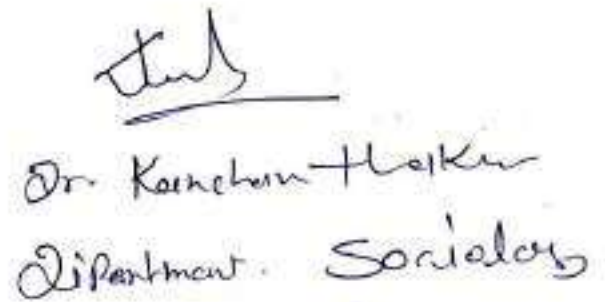 Dr. Kanchan Thakur
Dipartment. Sociology